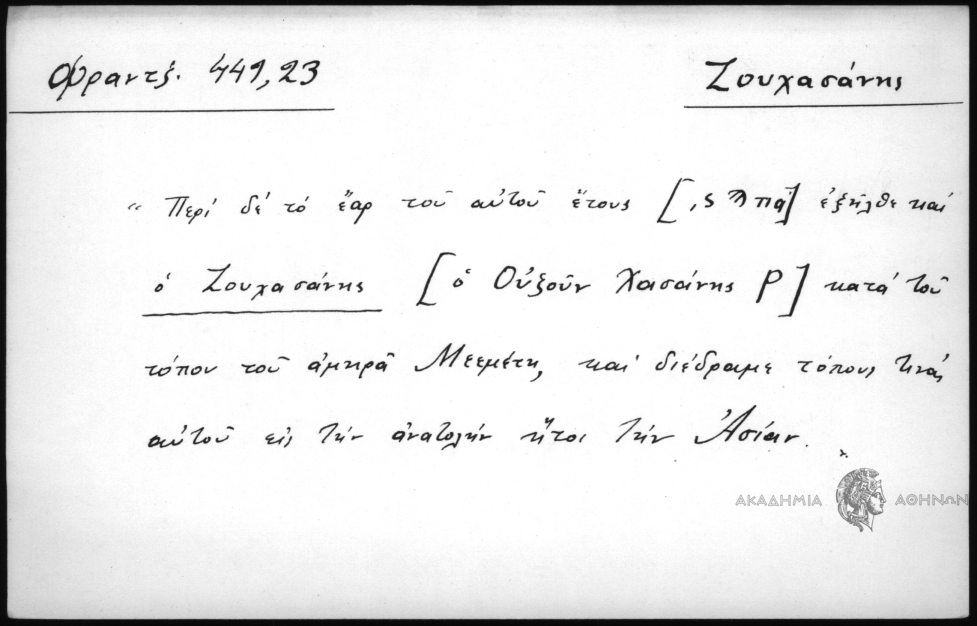 Φραντζ. 441,23
Ζουχασάνης
“ Περί δέ τό ἔαρ τοῦ αὐτοῦ ἔτους [͵ςϡπα] ἐξῆλθε καί
ὁ Ζουχασάνης [ὁ Οὐξοῦν Χασάνης P] κατά τοῦ
τόπου τοῦ ἀμηρᾶ Μεεμέτη, καί διέδραμε τόπους τινάς
αὐτοῦ εἰς τήν ἀνατολήν ἤτοι τήν Ἀσίαν.
ΑΚΑΔΗΜΙΑ ΑΘΗΝΩΝ